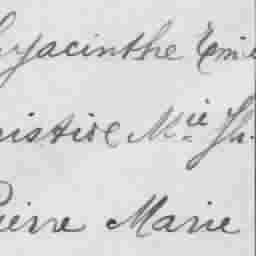 hyacinthe Emi
ristive Mie Th.
Pierre Marie